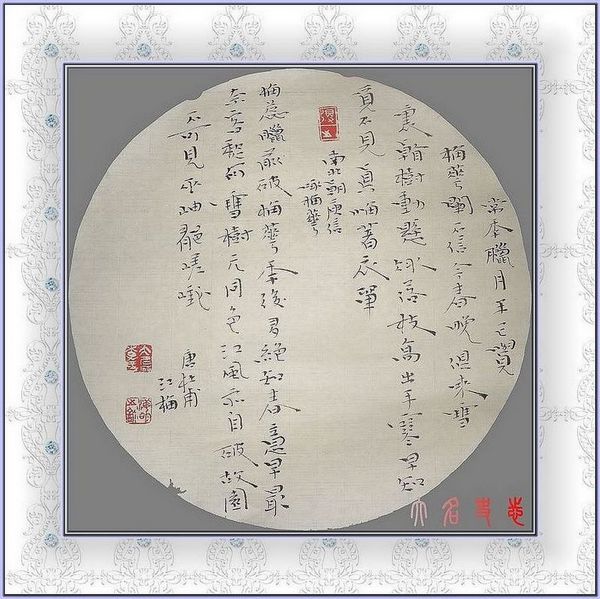 常年臘月半已覺
梅華闌不信今春晚俱來雪
裏看樹動懸冰落枝高出手寒早知
覓不見真悔著衣單
南北朝庾信
詠梅華
梅蕊臘前破梅華年後多絕知春意早最
奈客愁何雪樹元同色江風亦自波故園
不可見巫岫鬱嵯峨
唐杜甫
江梅